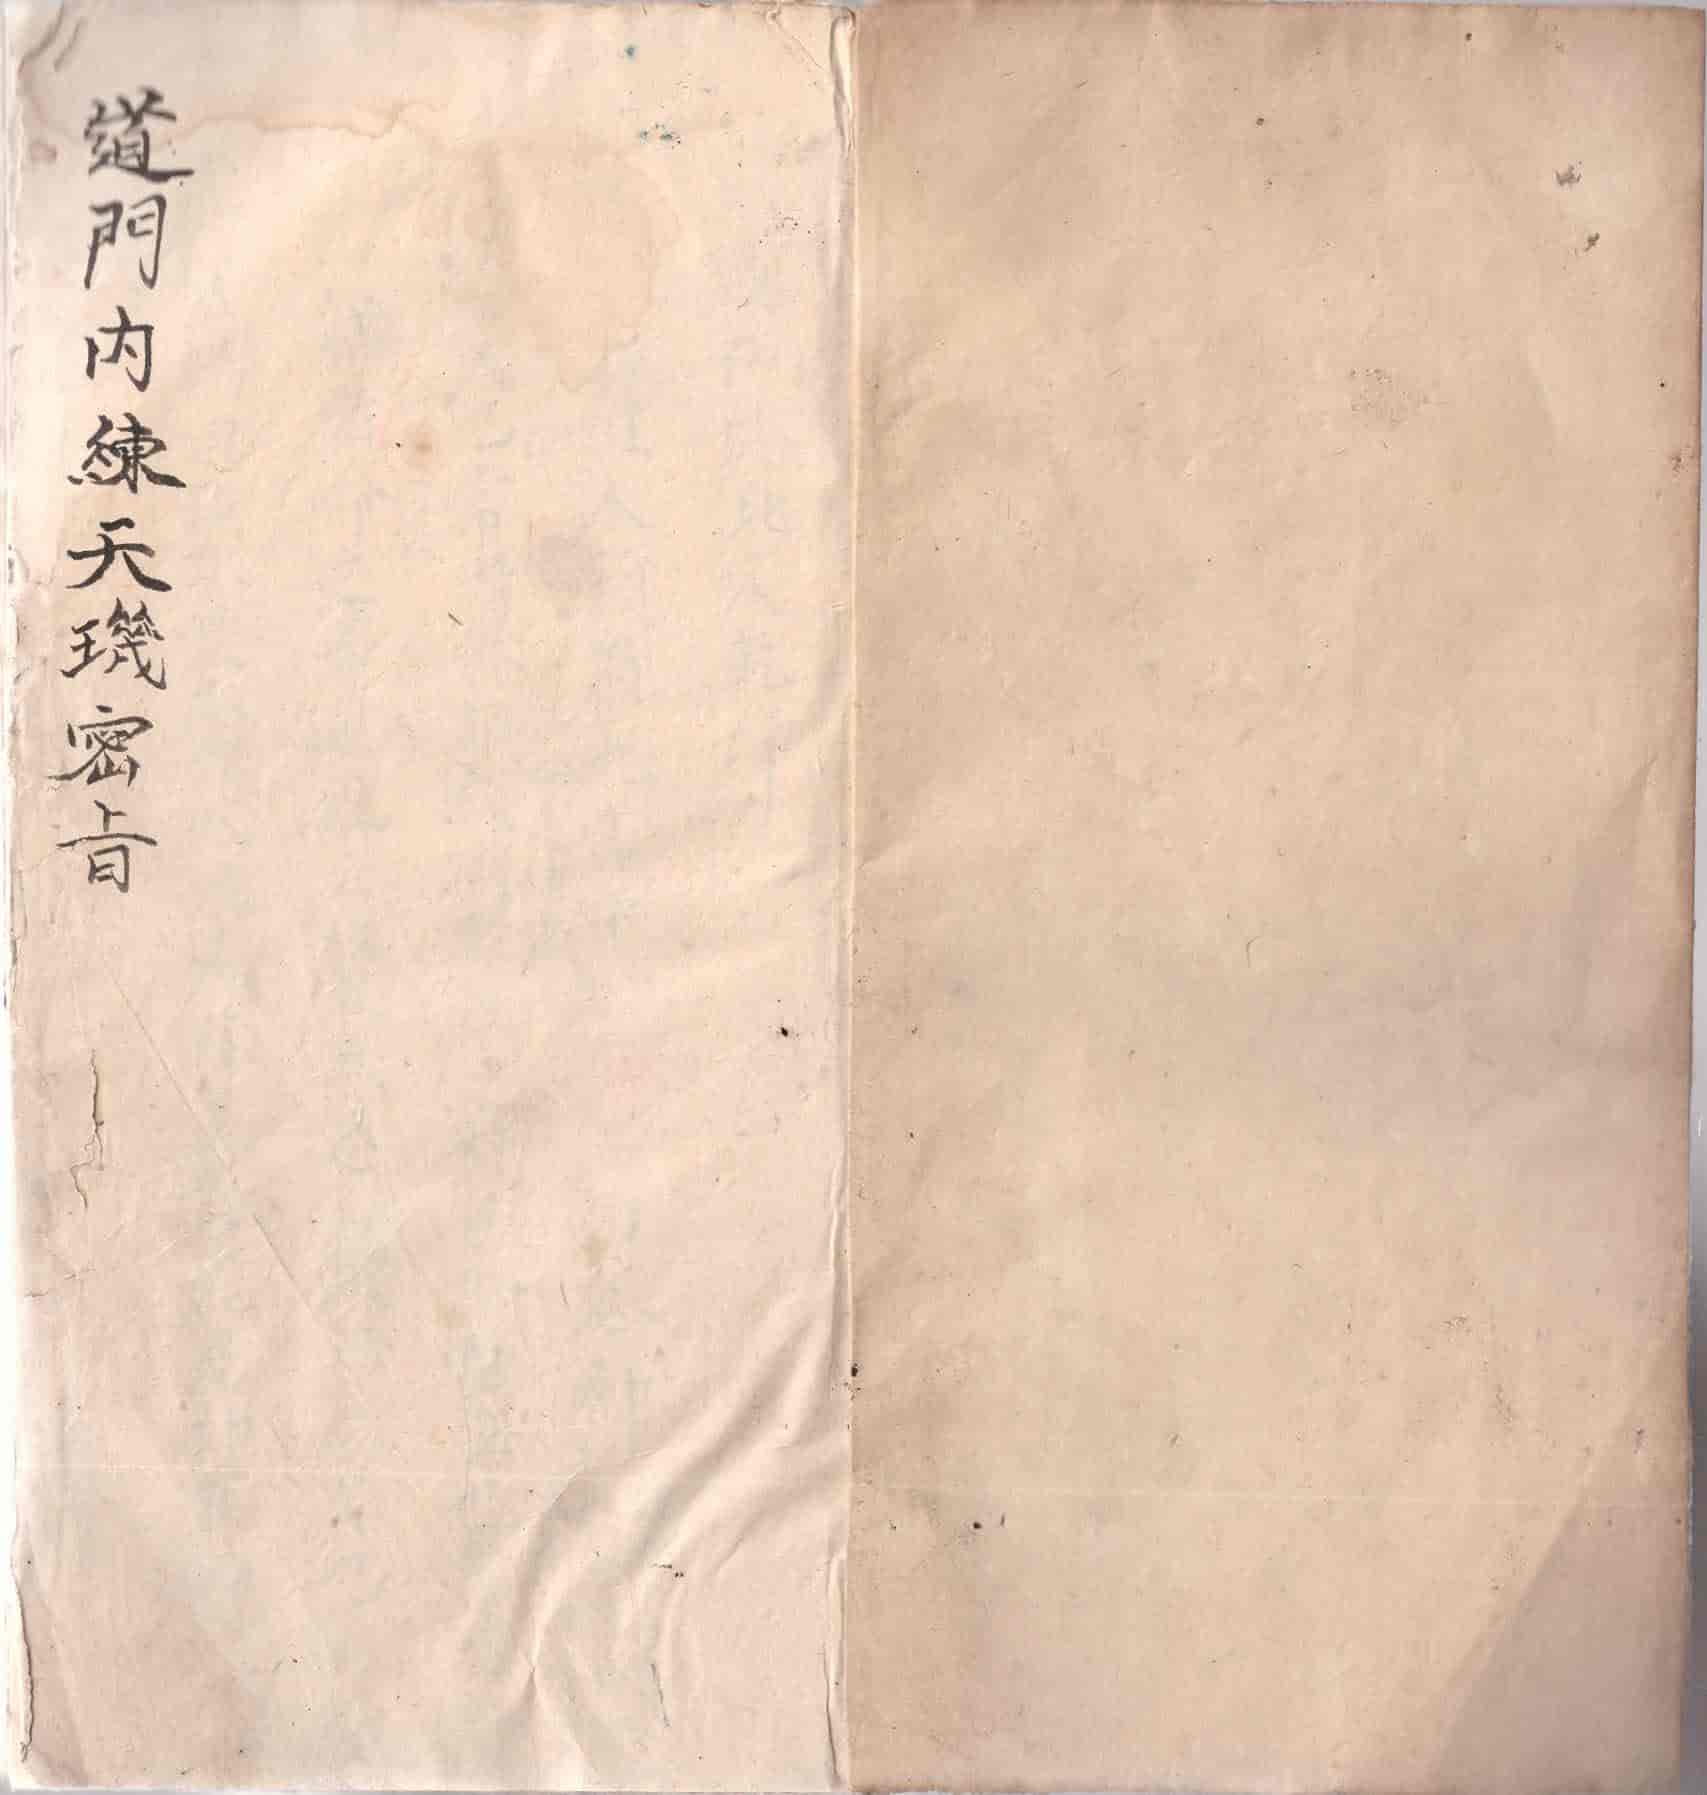 道門内練天璣密旨